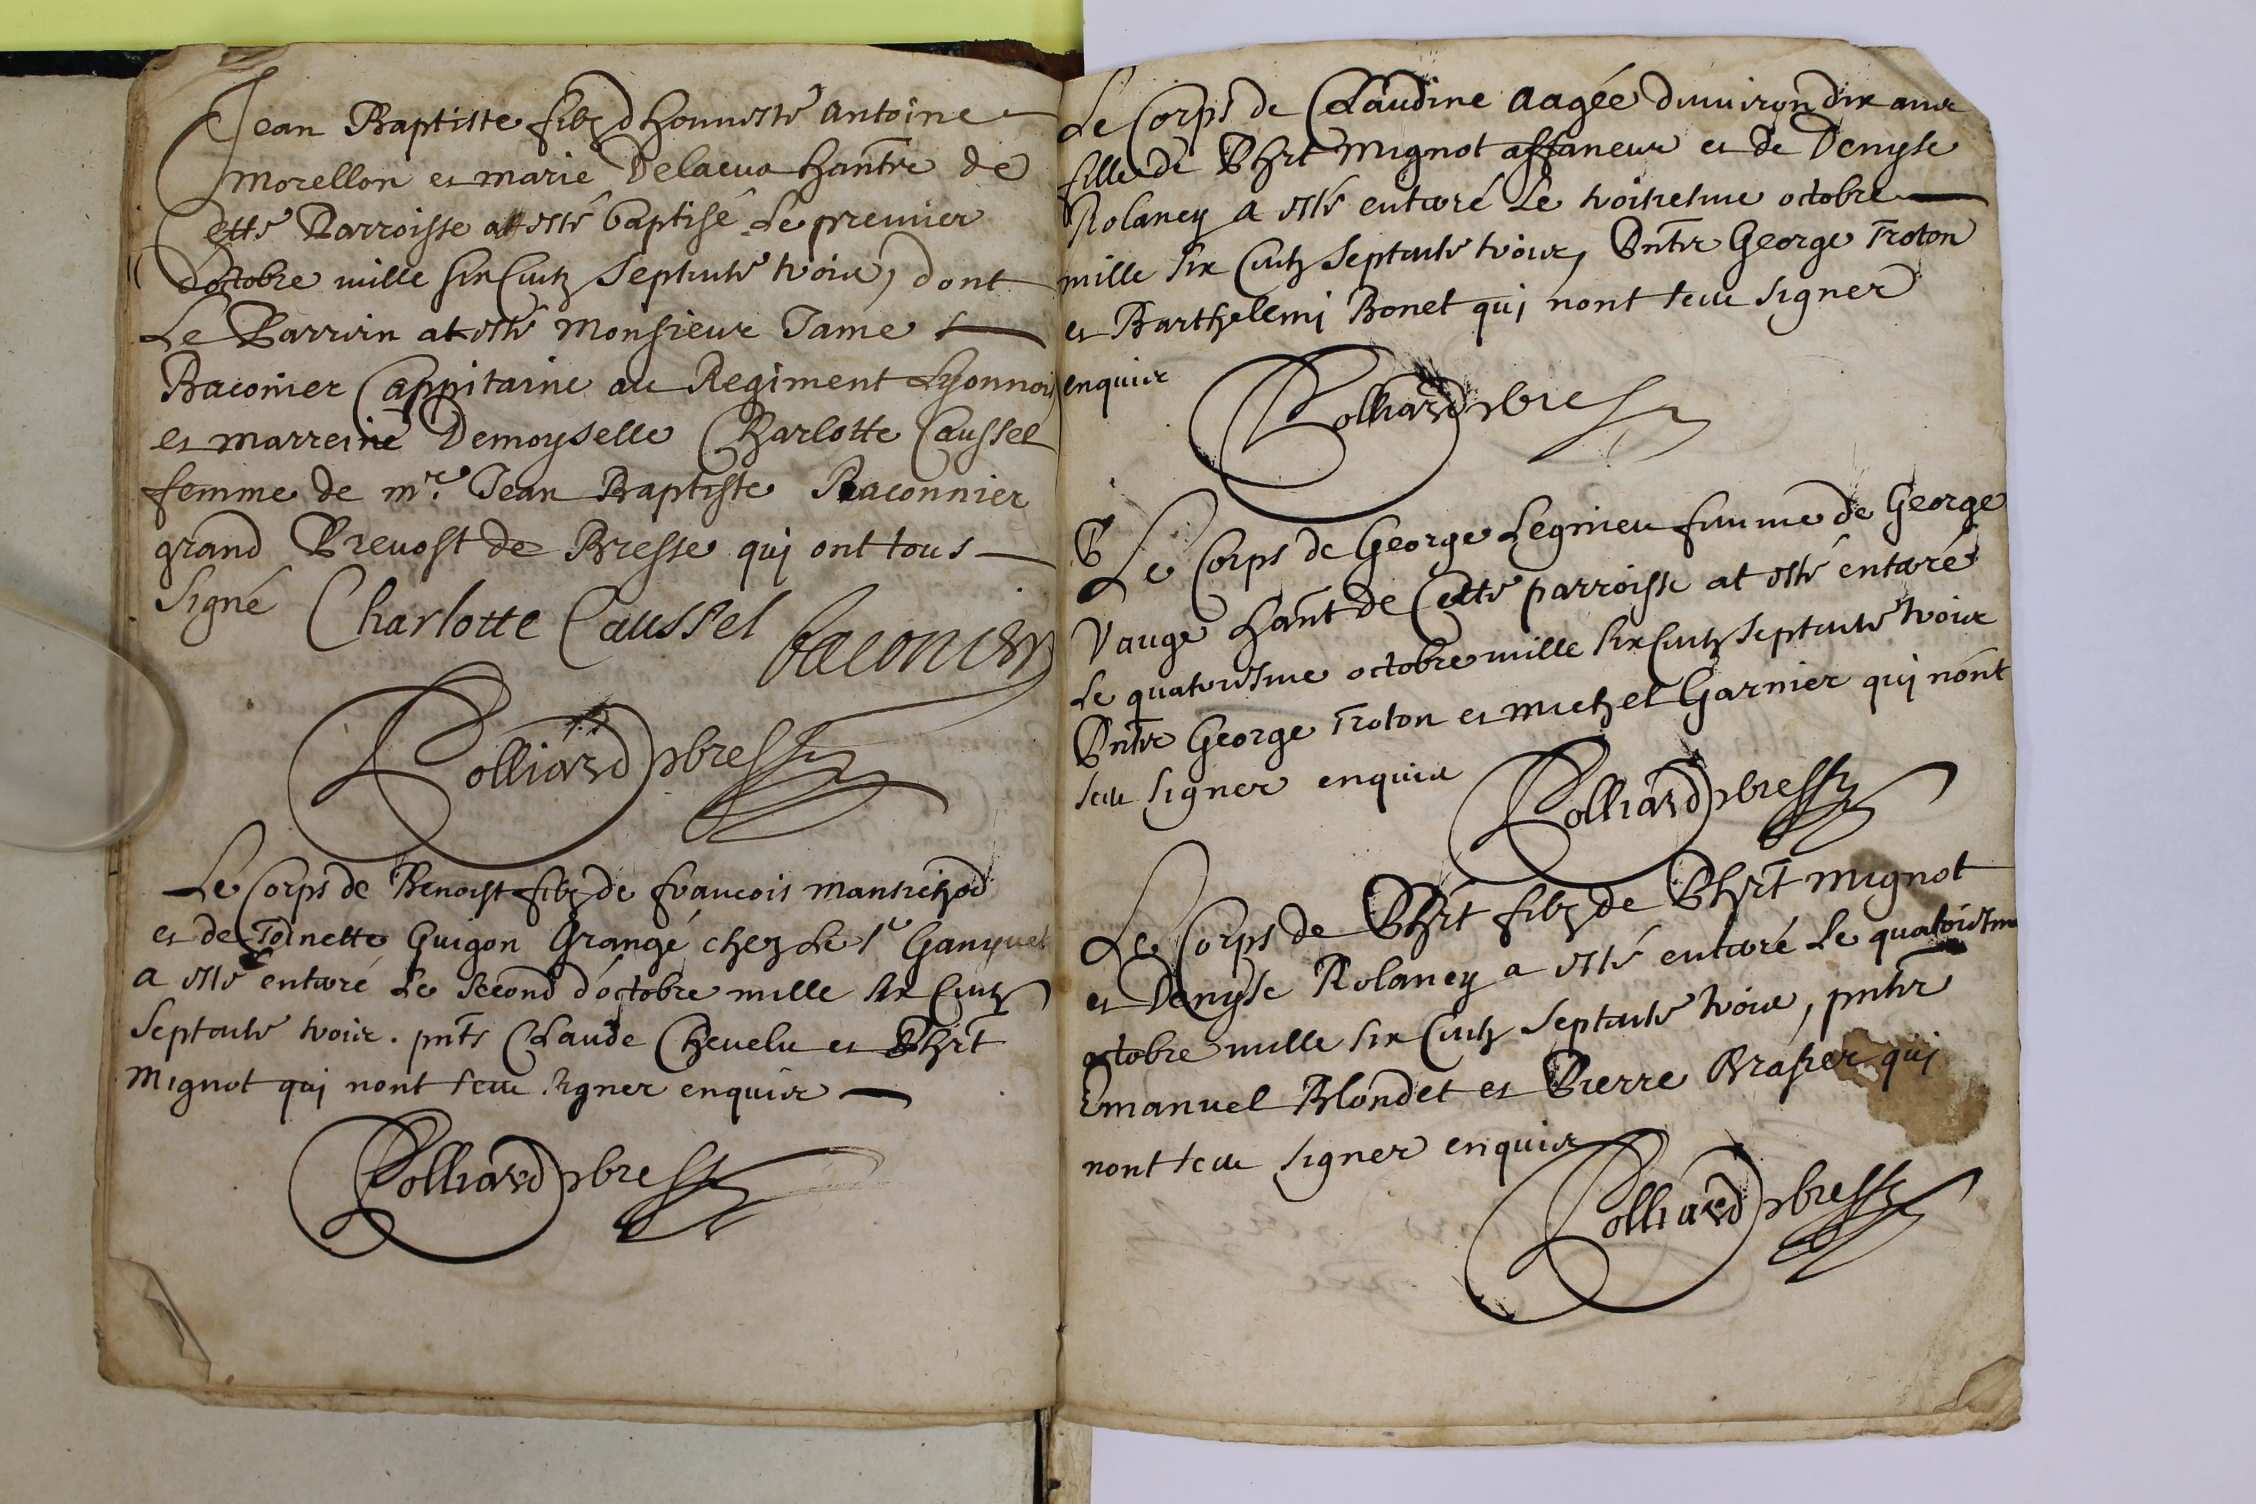 Jean Baptiste filz d honneste Antoine
Morellon et marie Delaeua hantre de
Cette Parroisse at esté baptisé Le premier
doctobre mille six Centz Septente trois, dont
Le Parrein at esté Monsieur Jame
Baconier Cappitaine au Regiment Lyonnois
et marreine Demoyselle Charlotte Caussel
femme de mre. Jean Baptiste Baconnier
grand Prevost de Bresse qui ont tous
Signé Charlotte Caussel baconier
Rolliard pbre
Le Corps de Benoist filz de francois
et de Toinette Guigon Grangé chez Le Sr
a esté enterré Le Second d'octobre mille six Centz
Septente trois. pnts Claude Chevelu et Phrt
Mignot qui nont sceu signer enquis
Rolliard pbre
Le Corps de Claudine aagée denviron dix ans
fille de Phrt Mignot affaneur et de Denyse
Rolaney a esté enterré Le troisiesme octobre
mille six Centz Septente trois, Pntz George Troton
et Barthelemi Bonet qui nont sceu signer
enquis
Rolliard pbre
Le Corps de George Legrieu femme de George
Vauge hant de Cette parroisse at esté enterré
Le quatriesme octobre mille six Centz Septente trois
Pntz George Troton et michel Garnier qui nont
sceu signer enquis
Rolliard pbre
Le Corps de Phrt filz de Phrt Mignot
et Denyse Rolaney a esté enterré Le quatoriesme
octobre mille six Centz Septente trois, pntz
Emanuel Blondet et Pierre Brasier qui
nont sceu signer enquis
Rolliard pbre